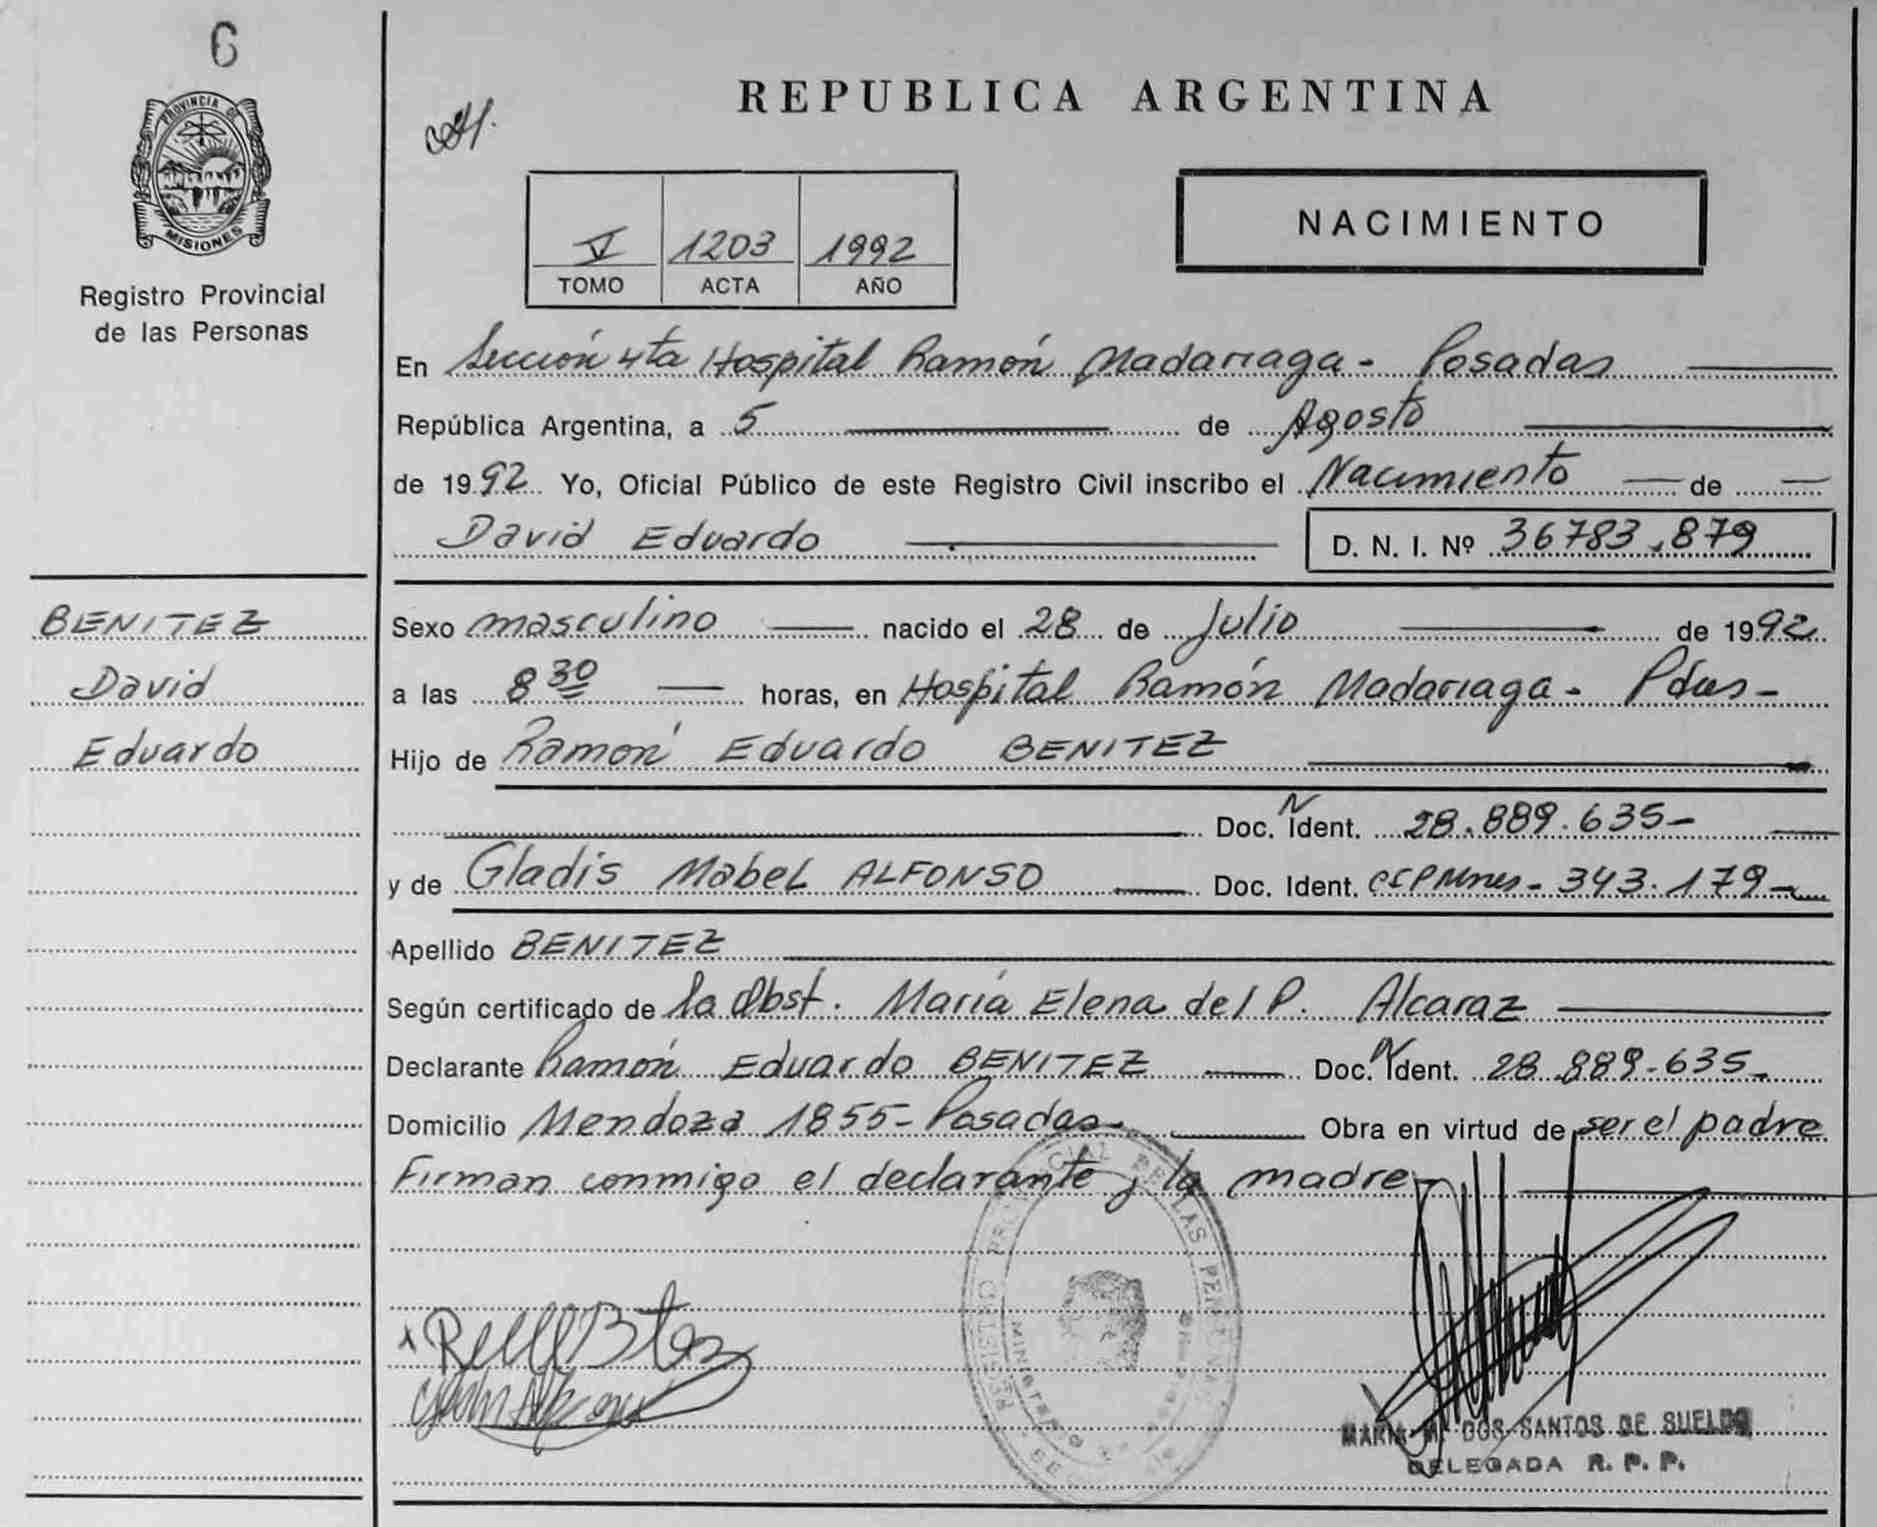 6
PROVINCIA DE
MISIONES
Registro Provincial
de las Personas
REPUBLICA ARGENTINA
V 1203 1992
TOMO ACTA AÑO
NACIMIENTO
En Sección 4ta Hospital Ramón Madariaga - Posadas
República Argentina, a 5 de Agosto
de 1992 Yo, Oficial Público de este Registro Civil inscribo el Nacimiento de
David Eduardo D. N. I. Nº 36783.879
BENITEZ
David
Eduardo
Sexo masculino nacido el 28 de Julio de 1992
a las 8 30 horas, en Hospital Ramón Madariaga - Pdas -
Hijo de Ramón Eduardo BENITEZ
Doc. N Ident. 28.889.635-
y de Gladis Mabel ALFONSO Doc. Ident. 343.179-
Apellido BENITEZ
Según certificado de la Obst. María Elena del P. Alcaraz
Declarante Ramón Eduardo BENITEZ Doc. N Ident. 28.889.635-
Domicilio Mendoza 1855 - Posadas - Obra en virtud de ser el padre
Firman conmigo el declarante y la madre
REGISTRO PROVINCIAL DE LAS PERSONAS
MINISTERIO
MARIA M. DOS SANTOS DE SUELDO
DELEGADA R. P. P.